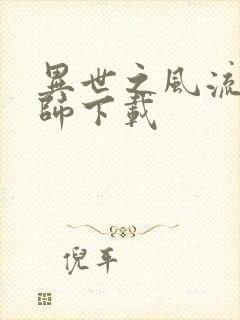 異世之風流
師下載
倪平